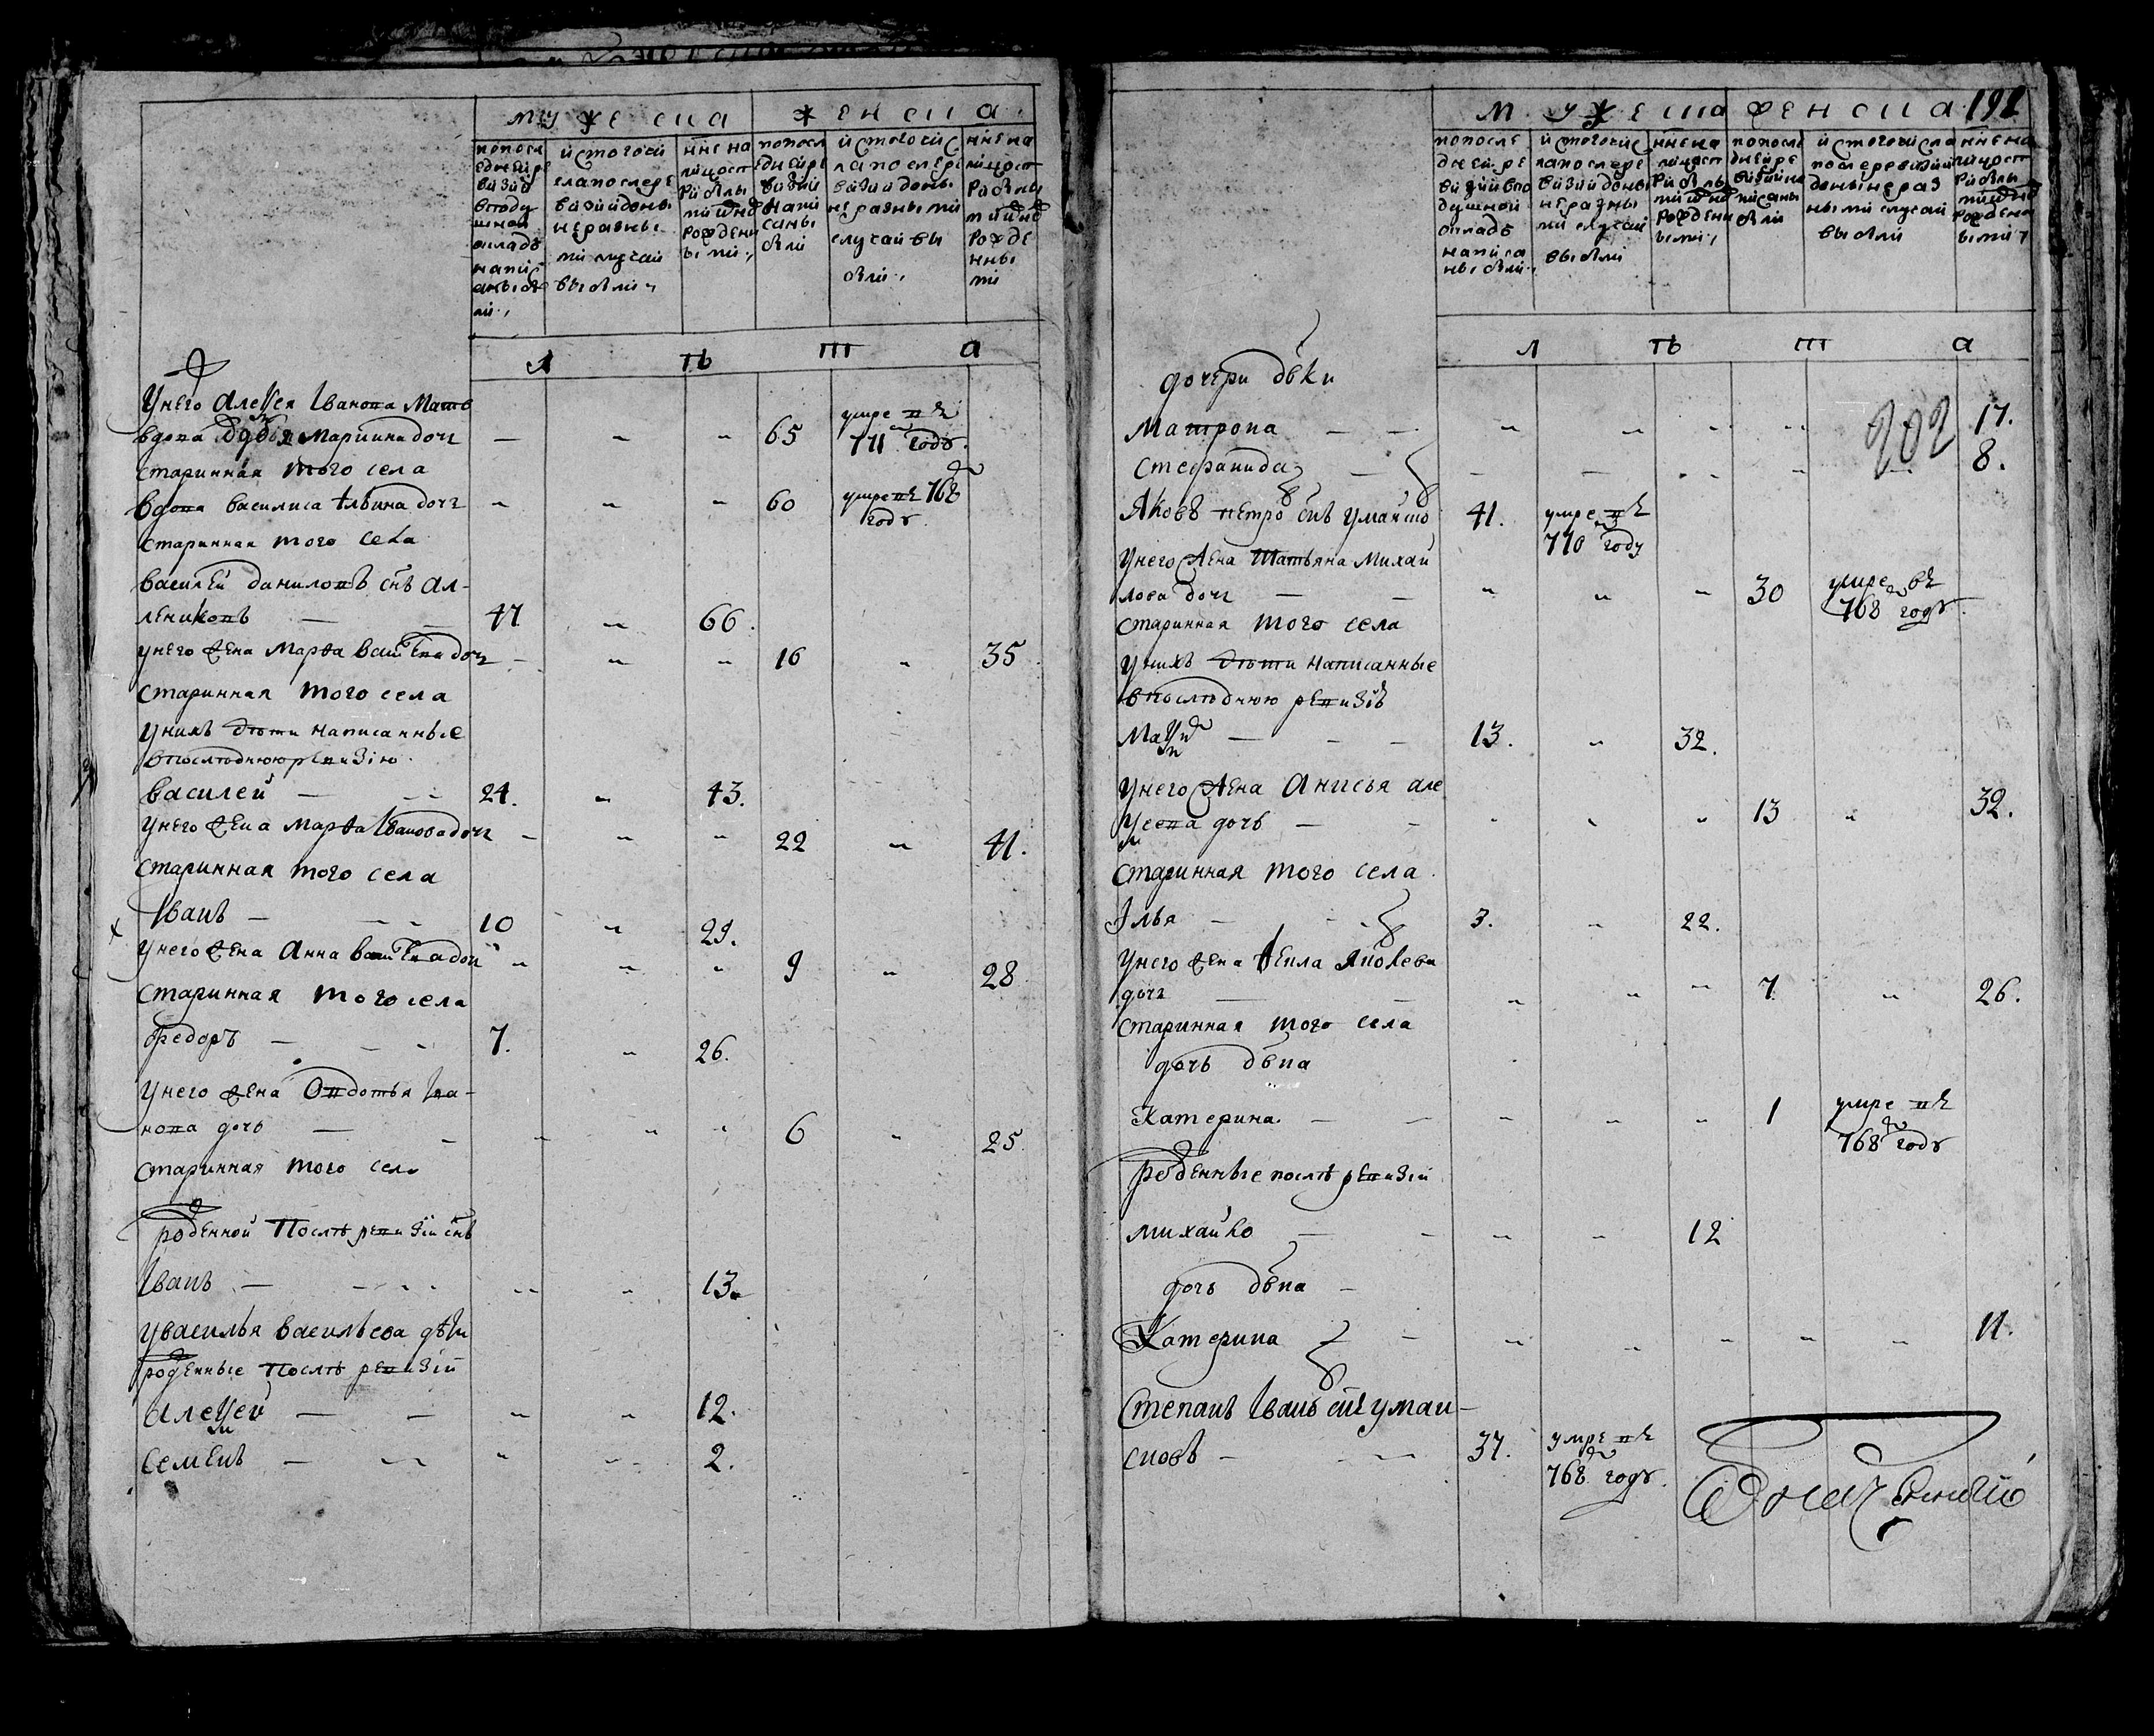 мужеска
женска
попоследней ревизии в подушной оклад написаны были
и стого числа после ревизии до ныне разными случаи выбыли
ныне на лицо с прибылыми и вновь рожденными
попоследней ревизии написаны были
и стого числа после ревизии до ныне разными случаи выбыли
ныне на лицо с прибылыми и вновь рожденными
л ѣ т а
Унего алеѯея Iванова мать
вдова дарья маркина доч - - - 65 умре в 771м годȣ
старинная того села
вдова василиса ильина доч - - - 60 умре в 768м годȣ
старинная того села
василей данилов снъ ал-
лениковъ - 47 - 66.
унего жена марѳа васильева доч - - - 16 - 35
старинная того села
унихъ дѣти написанные
впоследнюю ревизiю
василей - 24. - 43.
унего жена марѳа Iванова доч - - - 22 - 41.
старинная того села
Iванъ - 10 - 29.
унего жена анна васильева доч - - - 9 - 28
старинная того села
ѳедоръ - 7. - 26.
унего жена овдотья Iва-
нова дочь - - - 6 - 25.
старинная того села
рожденной послѣ ревизiи снъ
Iванъ - - - 13.
увасилья васильева дѣти
рожденные послѣ ревизiи
алеѯей - - - 12.
семенъ - - - 2.
мужеска женска 192
попоследней ревизии в подушной окладъ написаны были
и стого числа после ревизии до ныне разными случаи выбыли
ныне на лицо с прибылыми и вновь рожденными
попоследней ревизии написаны были
и стого числа после ревизии до ныне разными случаи выбыли
ныне на лицо с прибылыми и вновь рожденными
л ѣ т а
дочери двки
202
матрона - - - - - 17.
стефанида - - - - - 8.
яковъ петровъ снъ 41. умре в 770м году
унего жена татьяна михай
лова доч - - - 30 умре в 768м годȣ
старинная того села
унихъ дѣти написанные
впослѣднюю ревизiю
маѯим - 13. - 32.
унего жена анисья але
ѯеева дочь - - - 13 - 32.
старинная того села.
Илья - 3. - 22.
унего жена ѳекла яковлева
доч - - - 7. - 26.
старинная того села
дочь двка
катерина - - - 1 умре в 768м годȣ
рожденные послѣ ревизiи
михайло - - - 12
дочь двка -
катерина - - - - - 11.
степанъ Iвановъ снъ уман-
сковъ - 37. умре в 768м годȣ.